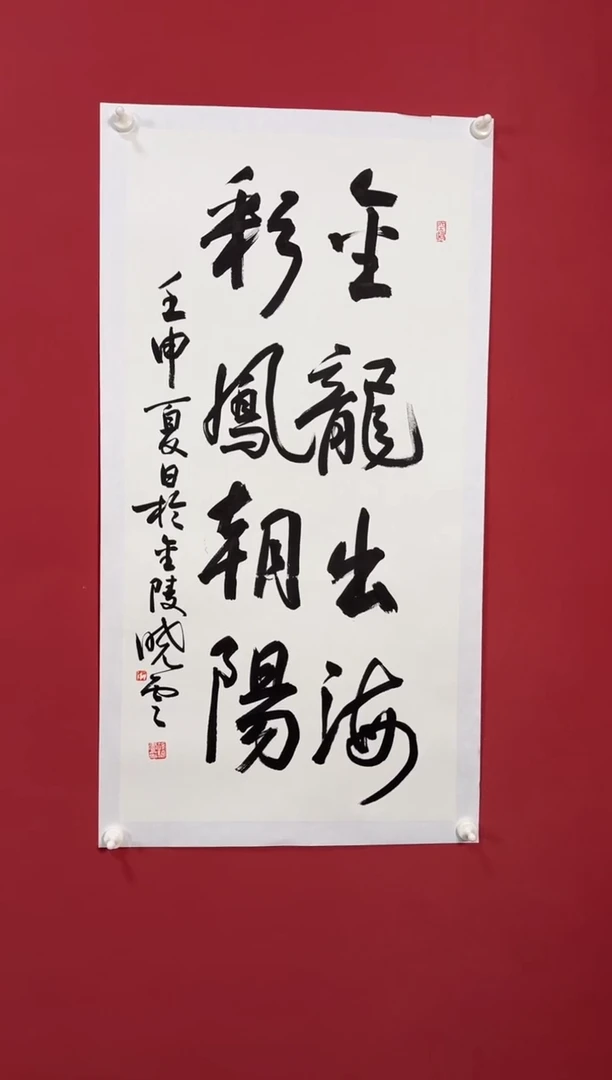 金龍出海
彩鳳朝陽
壬申夏日於金陵曉雲